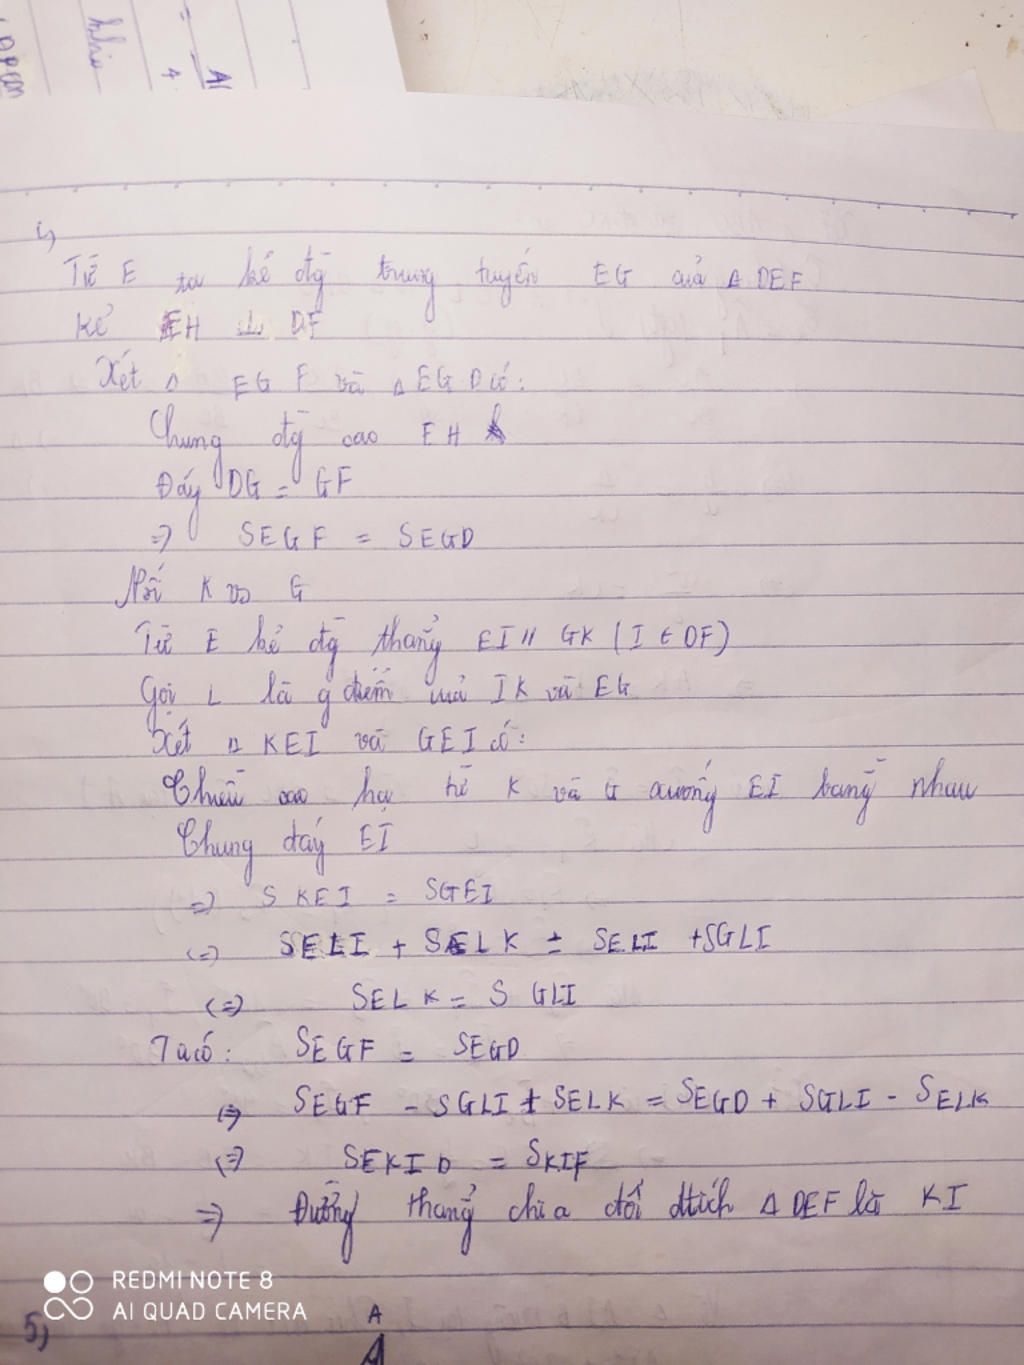 Từ E ta kẻ đg̀ trung tuyến EG của Δ DEF
Kẻ EH ⊥ DF
Xét Δ EGF và Δ EGD có:
Chung đg̀ cao EH
Đáy DG = GF
=> SEGF = SEGD
Nối K vs G
Từ E kẻ đg̀ thẳng EI // GK (I ∈ DF)
Gọi L là g điểm của IK và EG
Xét Δ KEI và GEI có:
Chiều cao hạ từ K và G xuống EI bằng nhau
Chung đáy EI
=> S KEI = SGEI
<=> SELI + SELK = SELI + SGLI
<=> SELK = S GLI
Ta có: SEGF = SEGD
<=> SEGF - SGLI + SELK = SEGD + SGLI - SELK
<=> SEKID = SKIF
=> Đường thẳng chia đôi dtích Δ DEF là KI
REDMI NOTE 8
AI QUAD CAMERA
5)
A